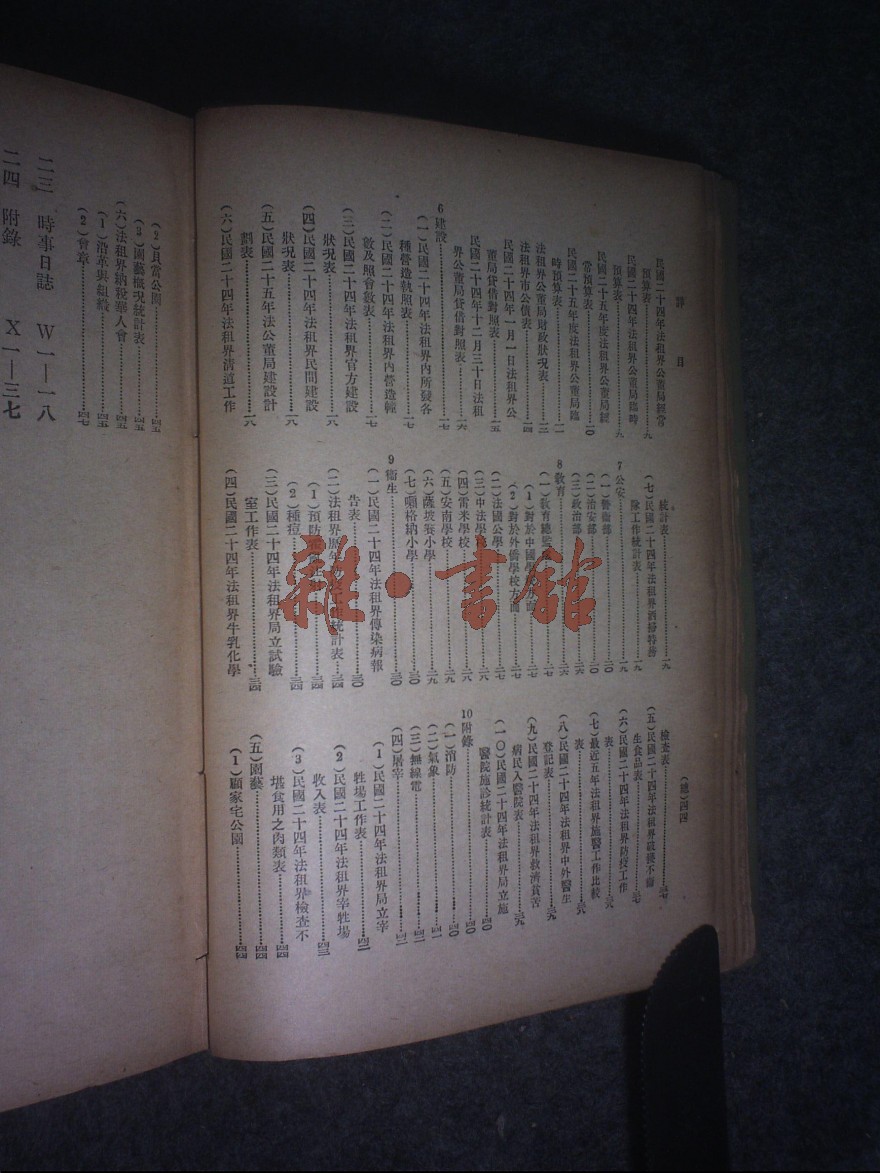 詳目
(總二四)
民國二十四年法租界公董局經常
預算表……九
民國二十四年法租界公董局臨時
預算表……九
民國二十五年度法租界公董局經
常預算表……一〇
民國二十五年度法租界公董局臨
時預算表……一一
法租界公董局財政狀況表……一三
法租界市公債表……一四
民國二十四年一月一日法租界公
董局貸借對照表……一五
民國二十四年十二月三十日法租
界公董局貸借對照表……一六
6建設
(一)民國二十四年法租界內所發各
種營造執照表……一七
(二)民國二十四年法租界內營造幢
數及照會數表……一七
(三)民國二十四年法租界官方建設
狀況表……一八
(四)民國二十四年法租界民間建設
狀況表……一八
(五)民國二十五年法公董局建設計
劃表……一八
(六)民國二十四年法租界清道工作
統計表……一九
(七)民國二十四年法租界洒掃特務
隊工作統計表……一九
7公安
(一)警衛部……一九
(二)治安部……二〇
(三)政治部
8教育……二六
(一)教育總監
(1)對於中國學校方面……二七
(2)對於外僑學校方面……二七
(二)法國公學……二七
(三)中法學校……二八
(四)雷米學校……二八
(五)安南學校……二九
(六)薩坡賽小學……二九
(七)喇格納小學……三〇
9衛生……三〇
(一)民國二十四年法租界傳染病報
告表……三〇
(二)法租界歷年防疫工作統計表……三四
(1)預防
(2)種痘……三四
(三)民國二十四年法租界局立試驗
室工作表……三四
(四)民國二十四年法租界牛乳化學
檢查表……三七
(五)民國二十四年法租界破獲不衛
生食品表……三七
(六)民國二十四年法租界防疫工作
表……三八
(七)最近五年法租界施醫工作比較
表……三八
(八)民國二十四年法租界中外醫生
登記表……三九
(九)民國二十四年法租界救濟貧苦
病民入醫院表……三九
(一〇)民國二十四年法租界局立施
醫院施診統計表……四〇
10附錄……四〇
(一)消防……四〇
(二)氣象……四一
(三)無線電……四二
(四)屠宰……四二
(1)民國二十四年法租界局立宰
牲場工作表……四二
(2)民國二十四年法租界宰牲場
收入表……四三
(3)民國二十四年法租界檢查不
堪食用之肉類表……四四
(五)園藝……四四
(1)顧家宅公園……四四
(2)貝當公園……四五
(3)園藝概況統計表……四五
(六)法租界納稅華人會……四五
(1)沿革與組織……四五
(2)會章……四七
二三 時事日誌 W一—一八
二四 附錄 X一—三七
雜·書館